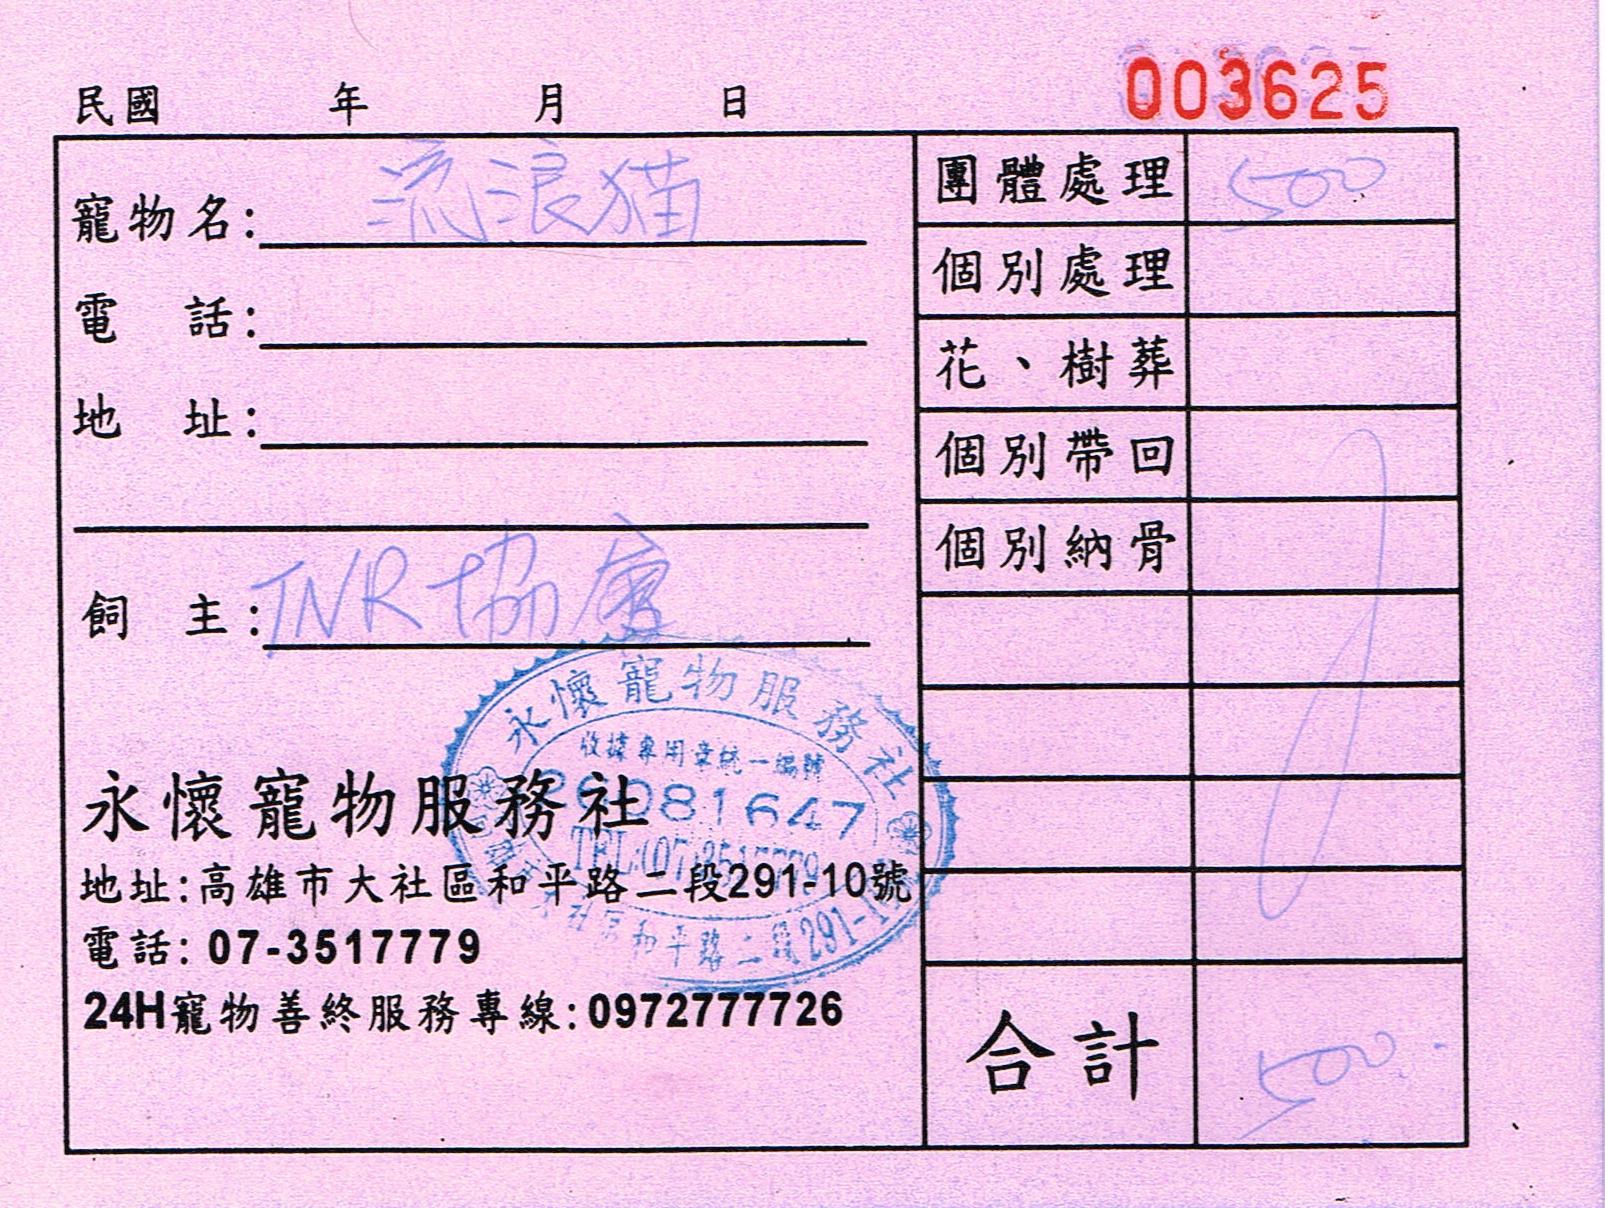 003625
民國 年 月 日
寵物名: 流浪猫
電 話:
地 址:
飼 主: TNR協會
團體處理 500
個別處理
花、樹葬
個別帶回
個別納骨
合計 500
永懷寵物服務社
地址:高雄市大社區和平路二段291-10號
電話: 07-3517779
24H寵物善終服務專線:0972777726
永懷寵物服務社
收據專用章統一編號
81647
TEL:(07)3517779
和平路二段291-1